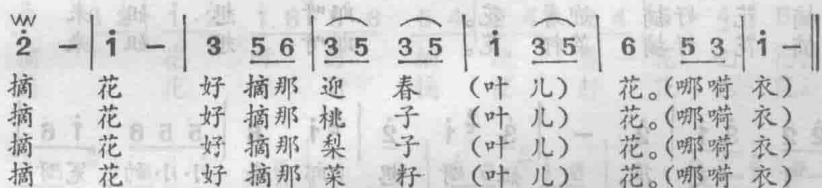 2̇ - | 1̇ - | 3 5 6 | 3 5 3 5 | 1̇ 3 5 | 6 5 3 | 1̇ - ‖
摘 花 好 摘那 迎 春 (叶 儿) 花。(哪嗬 衣)
摘 花 好 摘那 桃 子 (叶 儿) 花。(哪嗬 衣)
摘 花 好 摘那 梨 子 (叶 儿) 花。(哪嗬 衣)
摘 花 好 摘那 菜 籽 (叶 儿) 花。(哪嗬 衣)